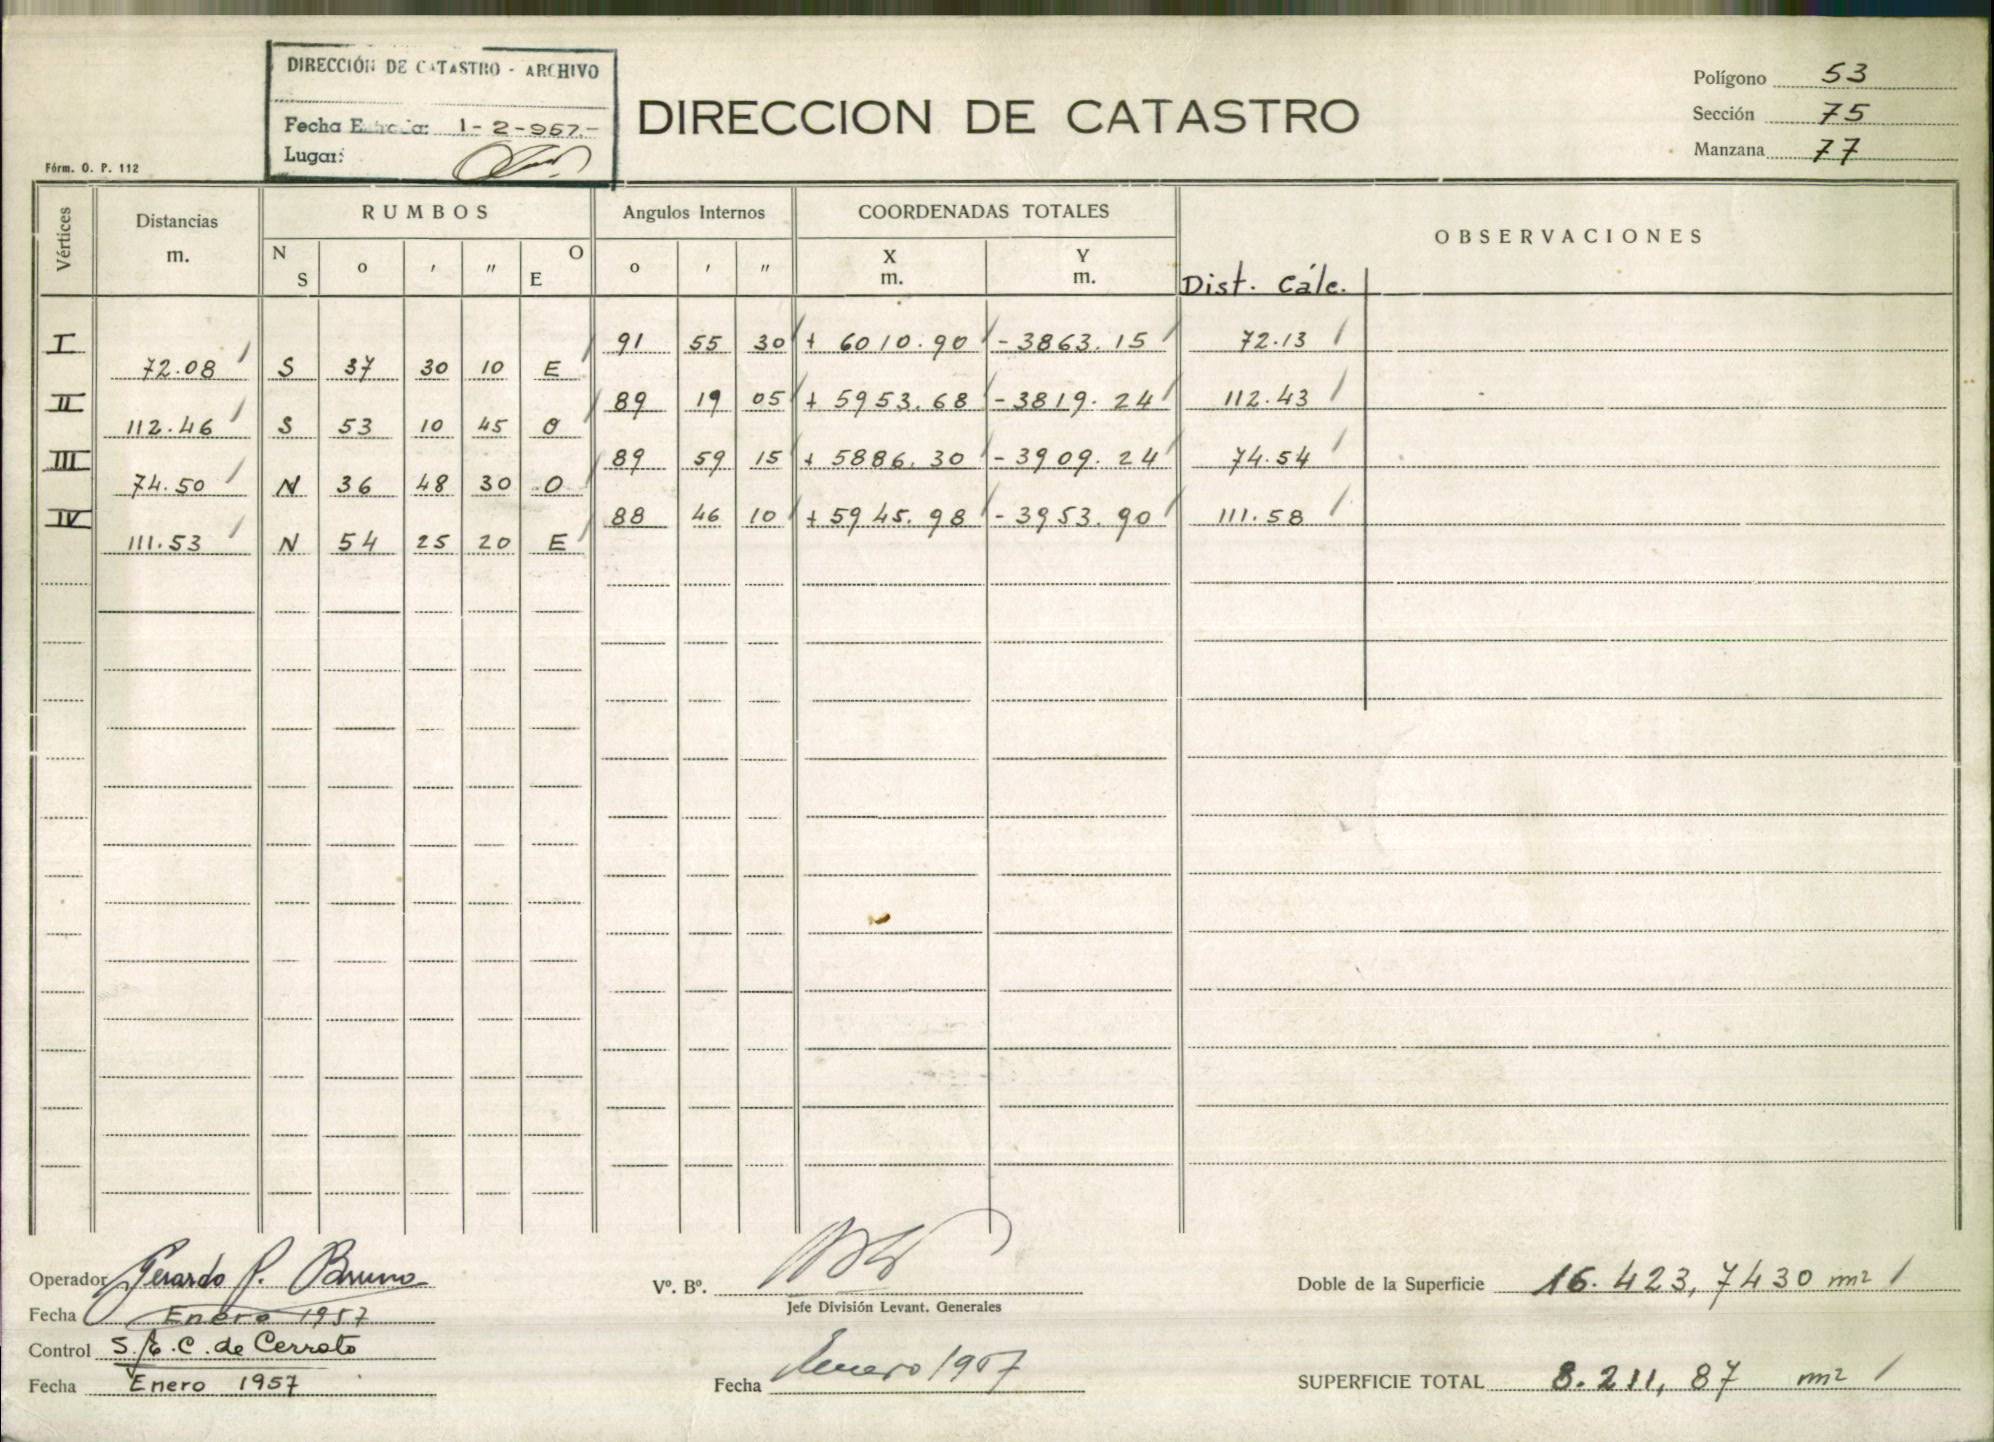 DIRECCIÓN DE CATASTRO - ARCHIVO
Fecha Entrada: 1-2-957.-
Lugar:
Fórm. O. P. 112
DIRECCION DE CATASTRO
Polígono 53
Sección 75
Manzana 77
Vértices Distancias m. RUMBOS Angulos Internos COORDENADAS TOTALES OBSERVACIONES
N S o ' " O E o ' " X m. Y m. Dist. Cálc.
I 91 55 30 + 6010.90 - 3863.15 72.13
72.08 S 37 30 10 E
II 89 19 05 + 5953.68 - 3819.24 112.43
112.46 S 53 10 45 O
III 89 59 15 + 5886.30 - 3909.24 74.54
74.50 N 36 48 30 O
IV 88 46 10 + 5945.98 - 3953.90 111.58
111.53 N 54 25 20 E
Operador Gerardo P. Bruno
Fecha Enero 1957
Control S.E.C. de Cerrato
Fecha Enero 1957
Vº. Bº.
Jefe División Levant. Generales
Fecha Enero 1957
Doble de la Superficie 16.423,7430 m2
SUPERFICIE TOTAL 8.211,87 m2